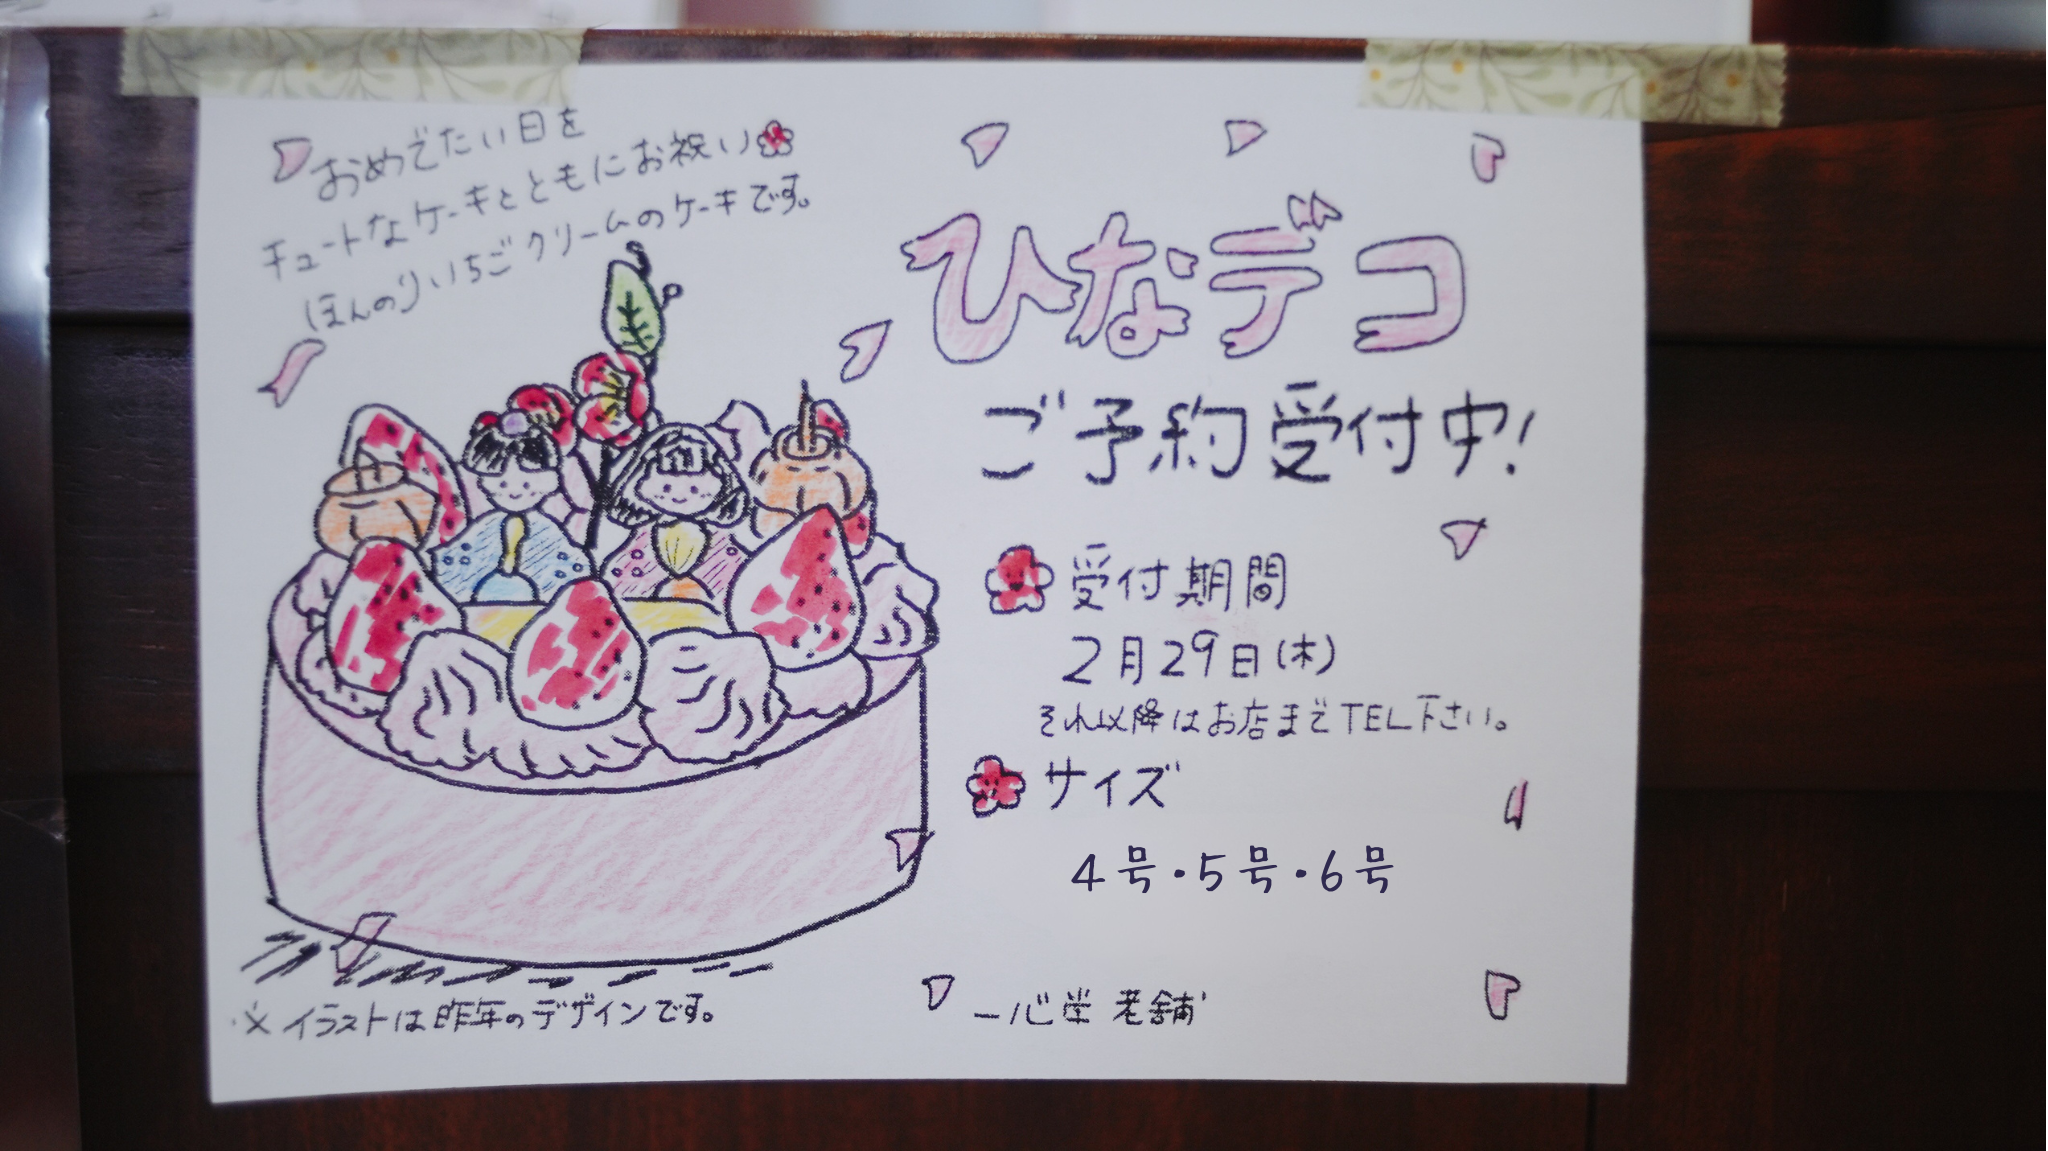 おめでたい日を
チュートなケーキとともにお祝い
ほんのりいちごクリームのケーキです。
ひなデコ
ご予約受付中!
受付期間
2月29日(木)
それ以降はお店までTEL下さい。
サイズ
4号・5号・6号
※イラストは昨年のデザインです。
一心堂 老舗